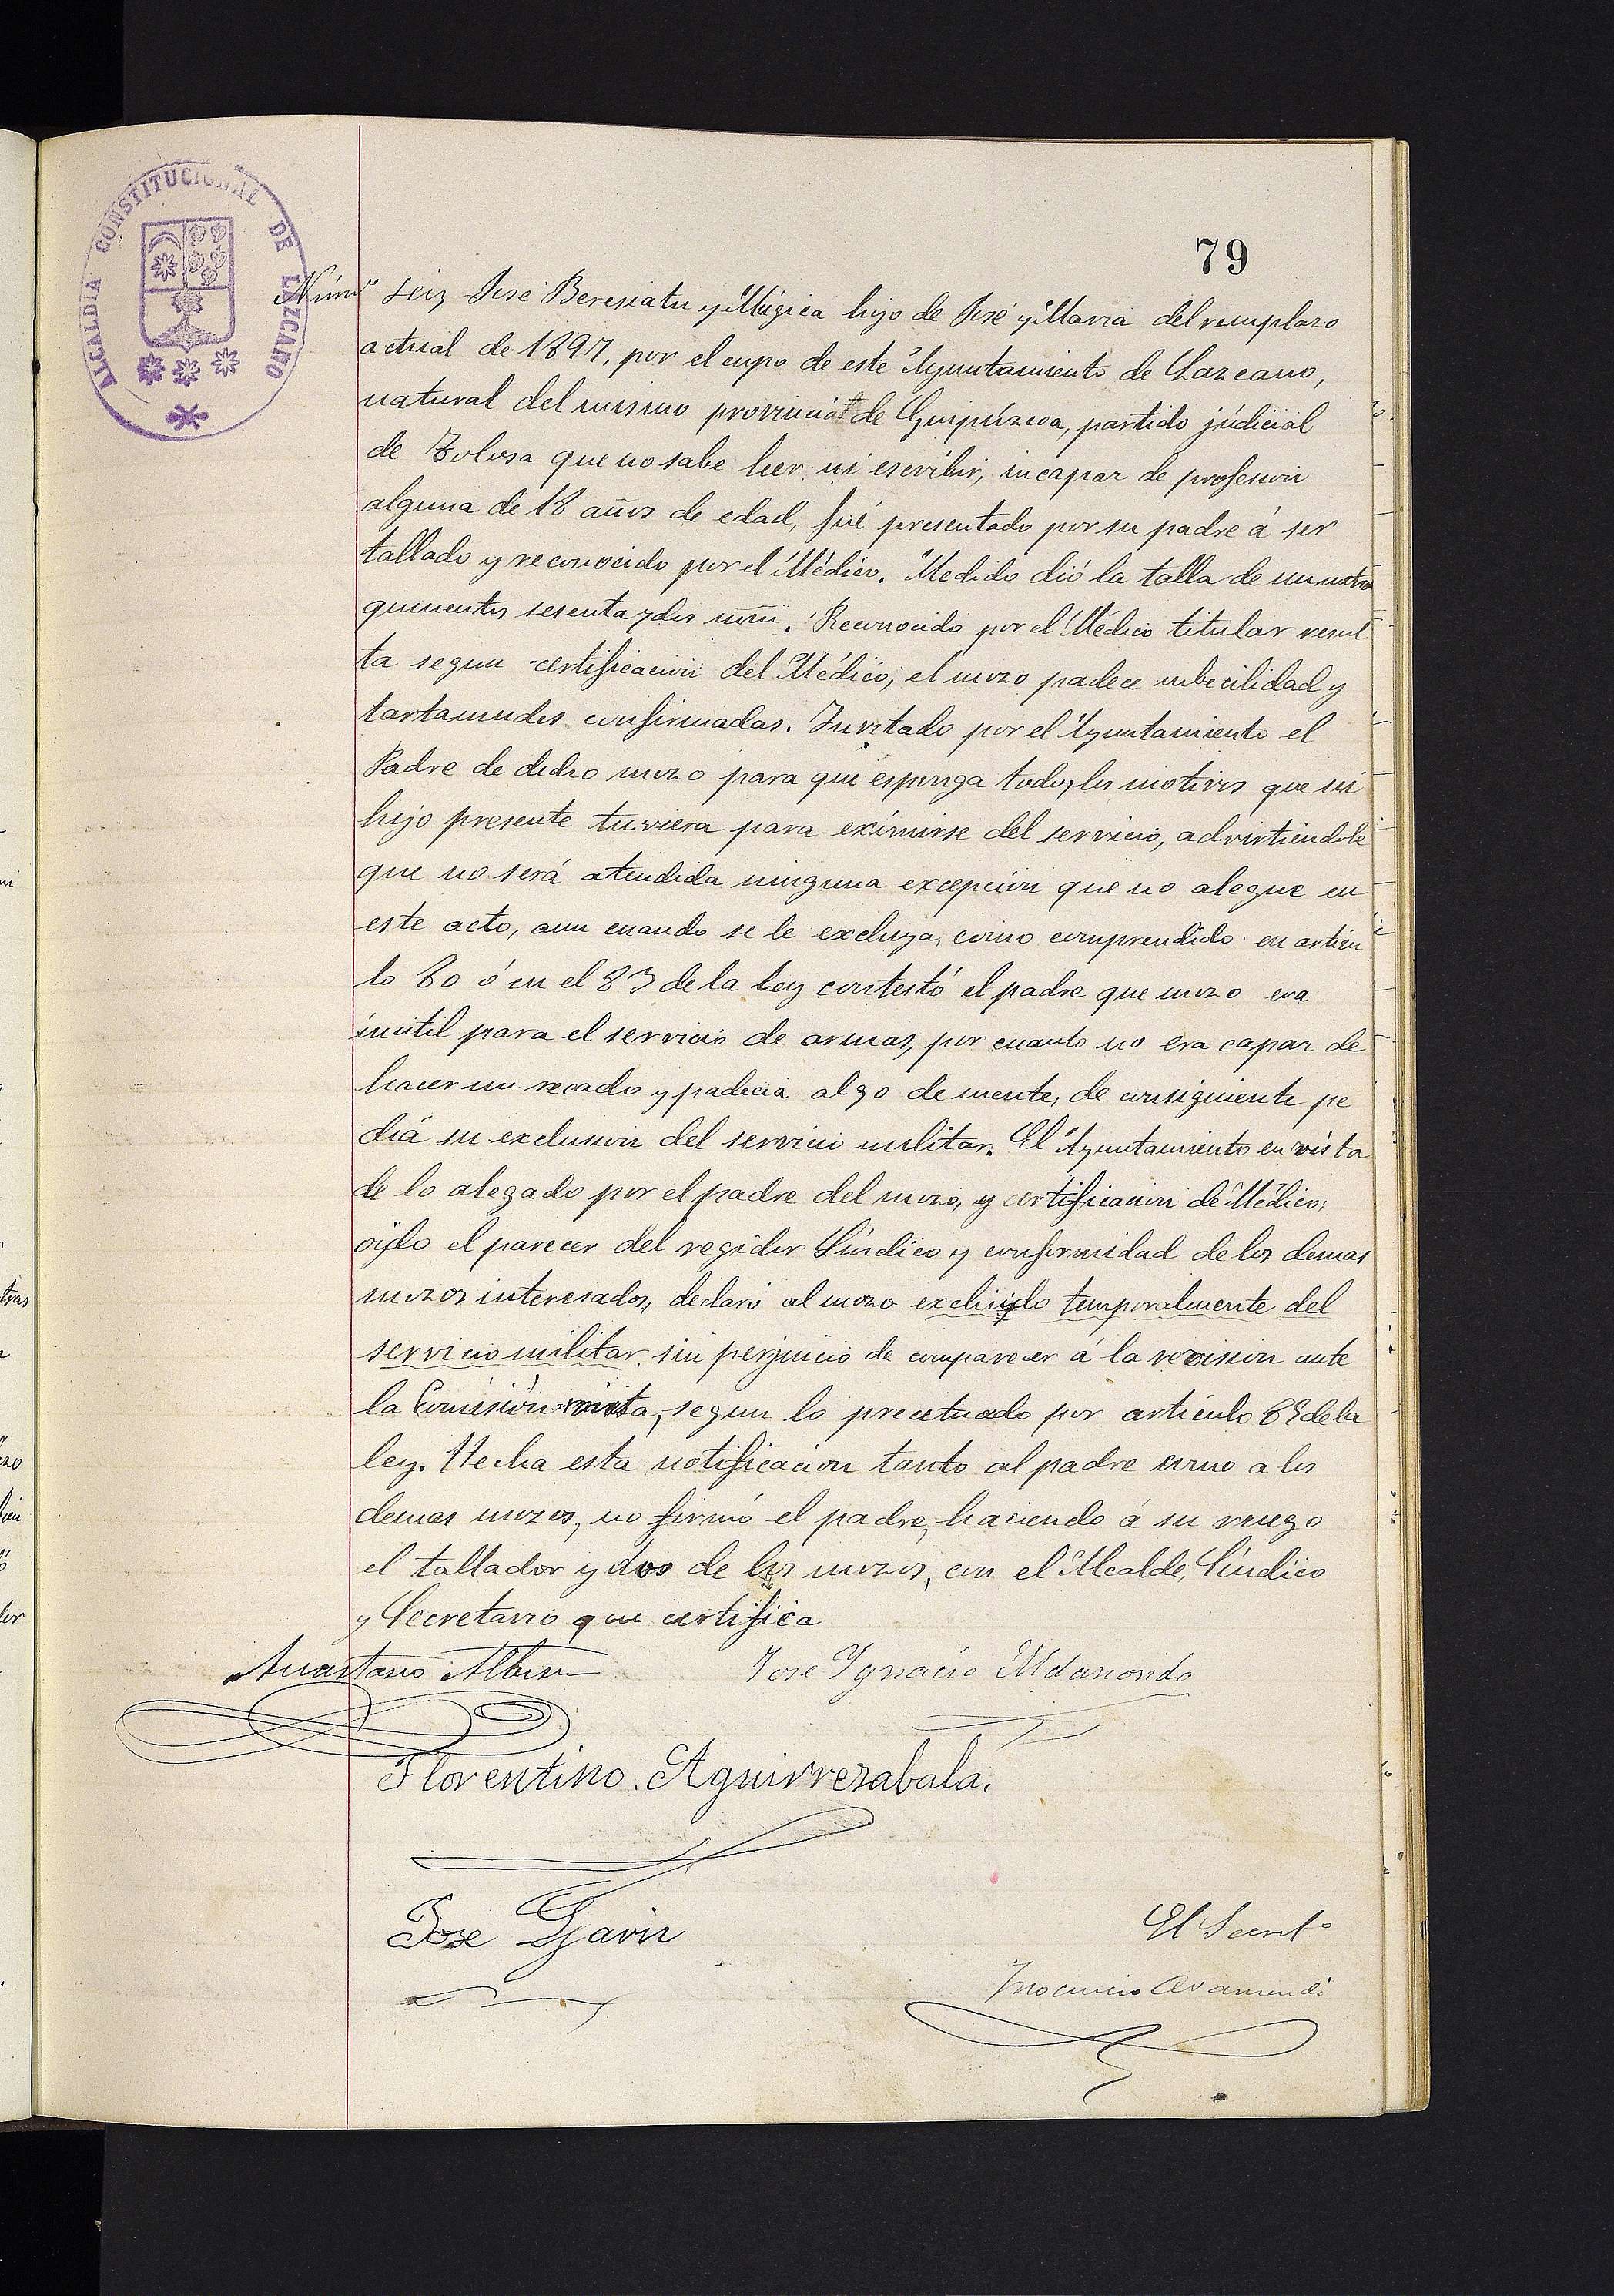 ALCALDIA CONSTITUCIONAL DE LAZCANO
79
Númº seis José Beresiatu y Múgica hijo de José y Maria del remplazo
actual de 1897, por el cupo de este Ayuntamiento de Lazcano,
natural del mismo provincia de Guipúzcoa, partido júdicial
de Tolosa que no sabe leer ni escribir, incapaz de profesion
alguna de 18 años de edad, fué presentado por su padre á ser
tallado y reconocido por el Médico. Medido dió la talla de un metro
quinientos sesenta y dos mm. Reconocido por el Médico titular resul
ta segun certificacion del Médico, el mozo padece imbecilidad y
tartamudes confirmadas. Invitado por el Ayuntamiento el
Padre de dicho mozo para que esponga todos los motivos que su
hijo presente tuviera para eximirse del servicio, advirtiendole
que no será atendida ninguna excepcion que no alegue en
este acto, aun cuando se le excluya, como comprendido en artícu
lo 80 ó en el 83 de la ley contestó el padre que mozo era
inútil para el servicio de armas, por cuanto no era capaz de
hacer un recado y padecia algo de mente, de consiguiente pe
diá su exclusion del servicio militar. El Ayuntamiento en vista
de lo alegado por el padre del mozo, y certificacion de Médico,
oido el parecer del regidor Síndico y conformidad de los demas
mozos interesados, declaró al mozo excluido temporalmente del
servicio militar, sin perjuicio de comparecer á la revision ante
la Comisión mista, segun lo precetuado por artículo 85 de la
ley. Hecha esta notificacion tanto al padre como a los
demas mozos, no firmó el padre, haciendo á su ruego
el tallador y dos de los mozos, con el Alcalde, Síndico
y Secretario que certifica
Anastasio Albisu José Ygnacio Aldanondo
Florentino Aguirrezabala.
Jose Gavin
El Secretº
Inocencio Aramendi